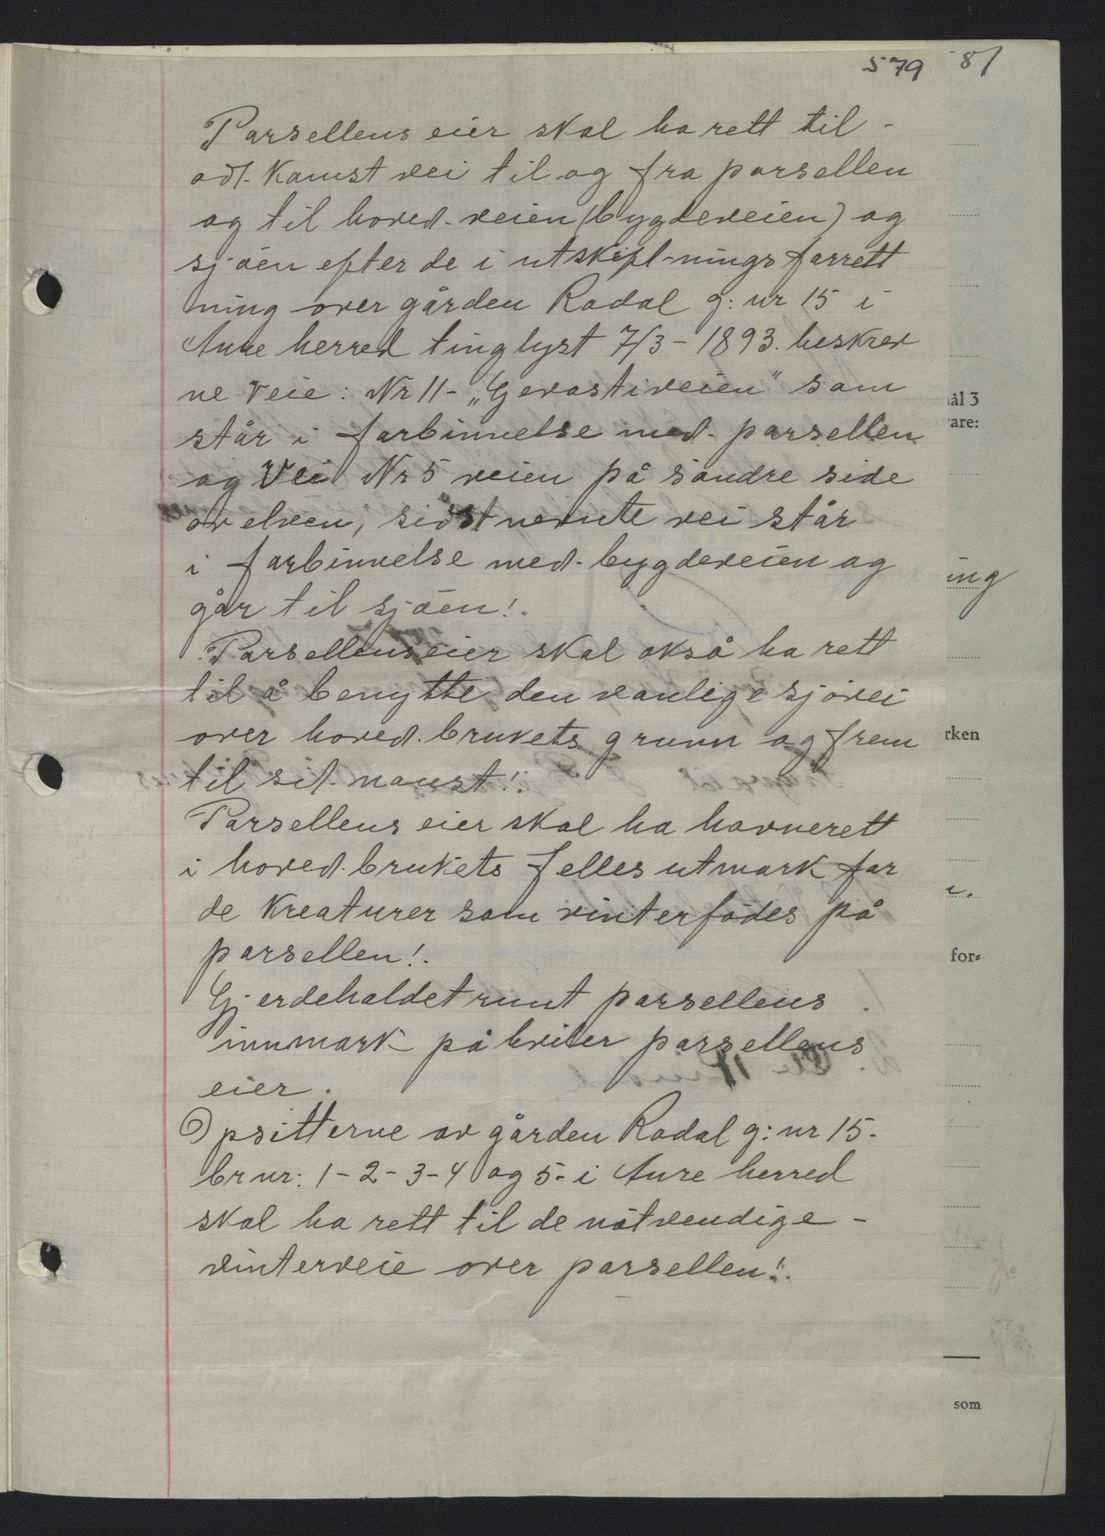 579 81
Parsellens eier skal ha rett til -
adl. Komst vei til og fra parsellen
og til hoved-veien (bygdeveien) og
sjöen efter de i utskift-nings forrett
ning over gården Rodal g: nr 15 i
Aure herred tinglyst 7/3 - 1893. beskrev
ne veie: Nr 11 - „Gerastiveien" som
står i forbinnelse med parsellen
og Vei Nr 5 veien på söndre side
av elven, sidstnevnte vei står
i forbinnelse med bygdeveien og
går til sjöen!.
Parsellens eier skal okså ha rett
til å benytte den vanlige sjövei
over hoved.brukets grunn og frem
til sit naust!.
Parsellens eier skal ha havnerett
i hoved.brukets felles utmark for
de Kreaturer som vinterfödes på
parsellen!.
Gjerdeholdet runt parsellens
innmark påhviler parsellens
eier.
Opsitterne av gården Rodal g: nr 15-
br nr: 1-2-3-4 og 5- i Aure herred
skal ha rett til de nötvendige -
vinterveie over parsellen!.
ål 3
are:
ing
rken
for=
som